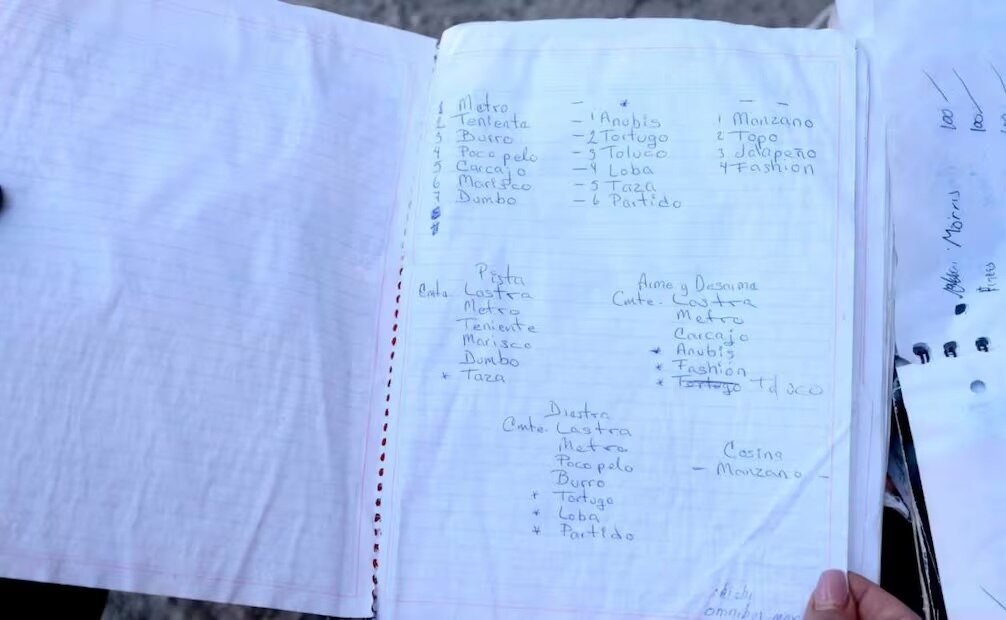 1 Metro
2 Tenienta
3 Burro
4 Poco pelo
5 Carcajo
6 Marisco
7 Dumbo
8
- *
- 1 Anubis
- 2 Tortugo
- 3 Toluco
- 4 Loba
- 5 Taza
- 6 Partido
- -
1 Manzano
2 Topo
3 Jalapeño
4 Fashion
Pista
Cmte. Lastra
Metro
Teniente
Marisco
Dumbo
* Taza
Arme y Desarme
Cmte. Lastra
Metro
Carcajo
* Anubis
* Fashion
* Tortugo Toluco
Diestra
Cmte. Lastra
Metro
Poco pelo
Burro
* Tortugo
* Loba
* Partido
Cosina
- Manzano -
omnibus
100
100
Morris